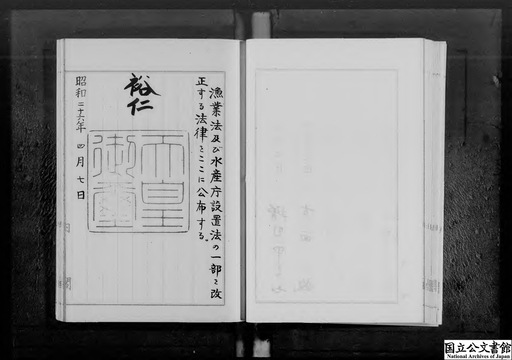 漁業法及び水産庁設置法の一部を改
正する法律をここに公布する。
裕仁
天皇
御璽
昭和二十六年四月七日
国立公文書館
National Archives of Japan